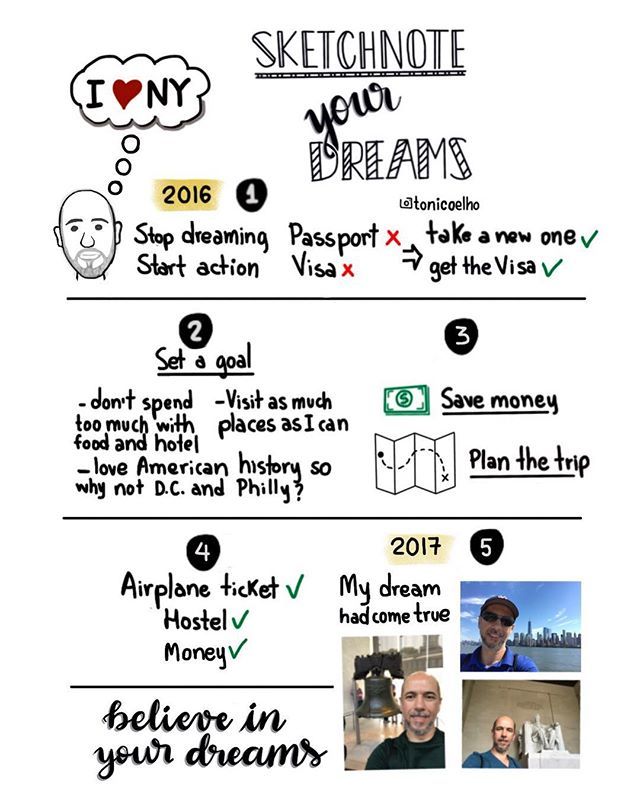 SKETCHNOTE
your
DREAMS
@tonicoelho
I ♥ NY
2016 1
Stop dreaming
Start action
Passport ✗
Visa ✗
⇒ take a new one ✓
get the Visa ✓
2
Set a goal
- don't spend
too much with
food and hotel
- Visit as much
places as I can
- love American history so
why not D.C. and Philly?
3
$
Save money
Plan the trip
4
Airplane ticket ✓
Hostel ✓
Money ✓
2017 5
My dream
had come true
believe in
your dreams